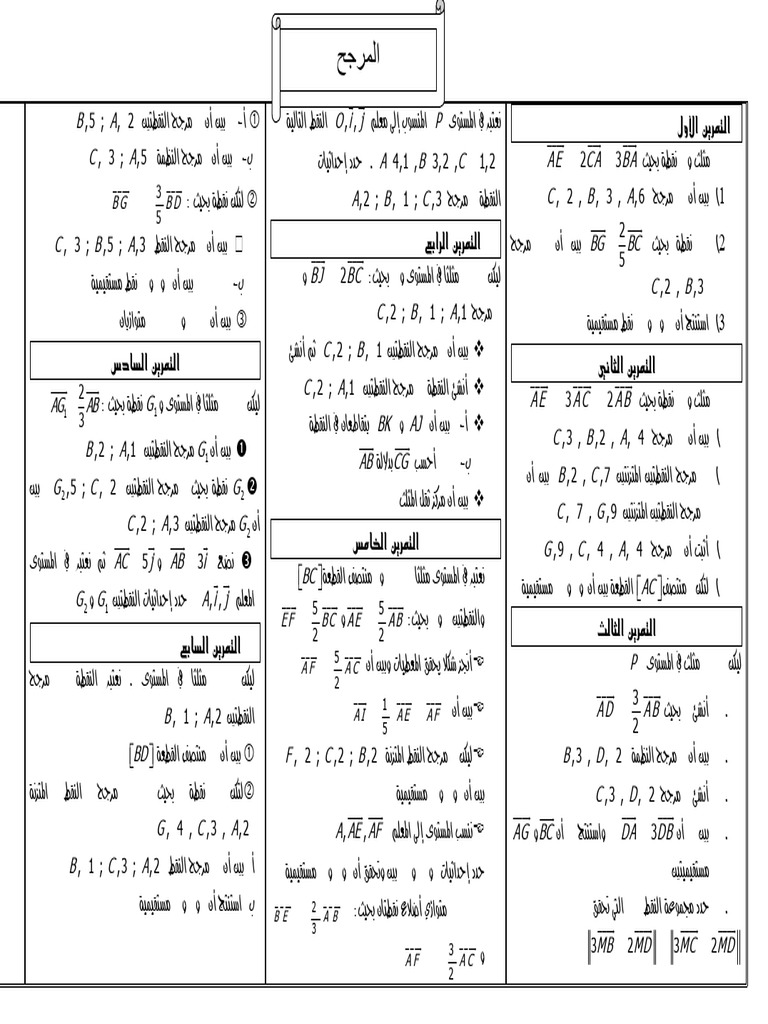 المرجح
التمرين الاول
مثلث و نقطة بحيث AE 2CA 3BA
1) بين أن مرجح A,6 , B, 3 , C, 2
2) نقطة بحيث BG 2/5 BC بين أن مرجح
C,2 , B,3
3) استنتج أن و و نقط مستقيمية
التمرين الثاني
مثلث و نقطة بحيث AE 3AC 2AB
) بين أن مرجح C,3 , B,2 , A, 4
) مرجح النقطتين المتزنتين B,2 , C,7 بين أن
مرجح النقطتين المتزنتين C, 7 , G,9
) أثبت أن مرجح G,9 , C, 4 , A, 4
) لتكن منتصف [AC] القطعة بين أن و و مستقيمية
التمرين الثالث
ليكن مثلث في المستوى P
. أنشئ بحيث AD 3/2 AB
. بين أن مرجح النظمة B,3 , D, 2
. أنشئ مرجح C,3 , D, 2
. بين أن DA 3DB واستنتج أن BC و AG
مستقيميتين
. حدد مجموعة النقط التي تحقق
‖3MB 2MD‖ ‖3MC 2MD‖
نعتبر في المستوى P المنسوب إلى معلم O,i,j النقط التالية
A 4,1 , B 3,2 , C 1,2 . حدد إحداثيات
النقطة مرجح A,2 ; B, 1 ; C,3
التمرين الرابع
ليكن مثلثا في المستوى و بحيث: BJ 2BC و
مرجح C,2 ; B, 1 ; A,1
❖ بين أن مرجح النقطتين C,2 ; B, 1 ثم أنشئ
❖ أنشئ النقطة مرجح النقطتين C,2 ; A,1
❖ أ- بين أن AJ و BK يتقاطعان في النقطة
ب- أحسب CG بدلالة AB
❖ بين أن مركز ثقل المثلث
التمرين الخامس
نعتبر في المستوى مثلثا و منتصف القطعة [BC]
والنقطتين و بحيث: AE 5/2 AB و EF 5/2 BC
أنجز شكلا يحقق المعطيات وبين أن AF 5/2 AC
بين أن AI 1/5 AE AF
ليكن مرجح النقط المتزنة F, 2 ; C,2 ; B,2
بين أن و و مستقيمية
ننسب المستوى إلى المعلم A,AE,AF
حدد إحداثيات و و بين وتحقق أن و و مستقيمية
متوازي أضلاع نقطتان بحيث: BE 2/3 AB
و AF 3/2 AC
① أ- بين أن مرجح النقطتين B,5 ; A, 2
ب- بين أن مرجح النظمة C, 3 ; A,5
② لتكن نقطة بحيث : BG 3/5 BD
□ بين أن مرجح النقط C, 3 ; B,5 ; A,3
ب- بين أن و و نقط مستقيمية
③ بين أن و متوازيان
التمرين السادس
ليكن مثلثا في المستوى و G1 نقطة بحيث: AG1 2/3 AB
❶ بين أن G1 مرجح النقطتين B,2 ; A,1
❷ G2 نقطة بحيث مرجح النقطتين G2,5 ; C, 2 بين
أن G2 مرجح النقطتين C,2 ; A,3
❸ نضع AB 3i و AC 5j ثم نعتبر في المستوى
المعلم A,i,j حدد إحداثيات النقطتين G1 و G2
التمرين السابع
ليكن مثلثا في المستوى . نعتبر النقطة مرجح
النقطتين B, 1 ; A,2
① بين أن منتصف القطعة [BD]
② لتكن نقطة بحيث مرجح النقط المتزنة
G, 4 , C,3 , A,2
أ بين أن مرجح النقط B, 1 ; C,3 ; A,2
ب استنتج أن و و مستقيمية